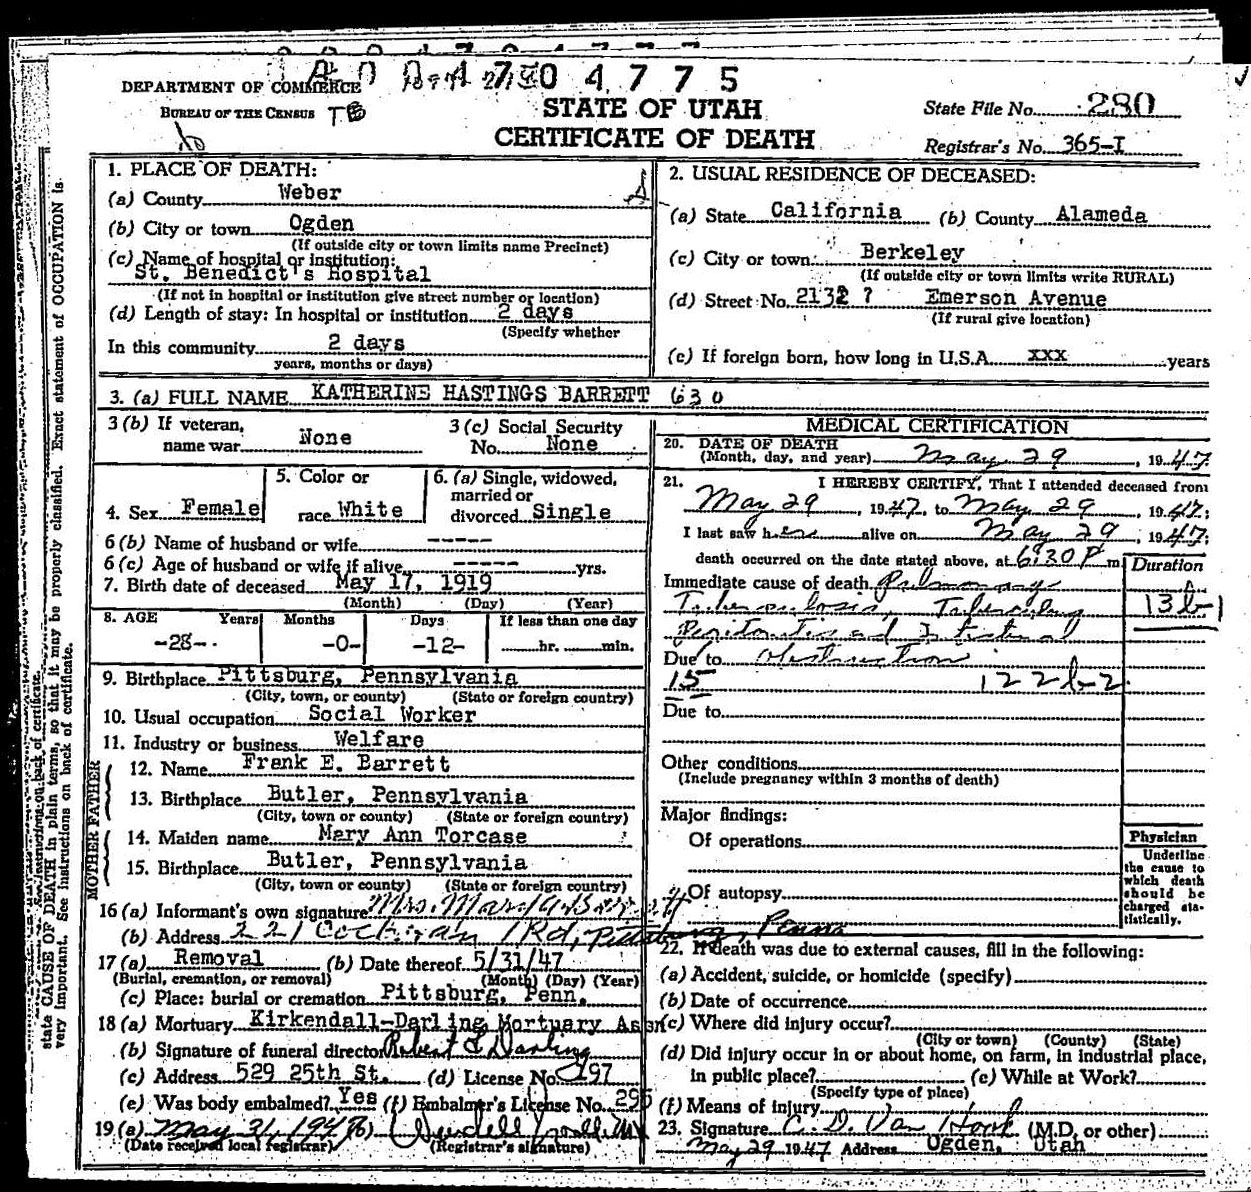 A 0 0 4 7 0 4 7 7 5
DEPARTMENT OF COMMERCE
BUREAU OF THE CENSUS
STATE OF UTAH
CERTIFICATE OF DEATH
State File No. 280
Registrar's No. 365-I
1. PLACE OF DEATH:
(a) County Weber
(b) City or town Ogden
(If outside city or town limits name Precinct)
(c) Name of hospital or institution:
St. Benedict's Hospital
(If not in hospital or institution give street number or location)
(d) Length of stay: In hospital or institution 2 days
(Specify whether
In this community 2 days
years, months or days)
2. USUAL RESIDENCE OF DECEASED:
(a) State California (b) County Alameda
(c) City or town: Berkeley
(If outside city or town limits write RURAL)
(d) Street No. 2132 ? Emerson Avenue
(If rural give location)
(e) If foreign born, how long in U.S.A. xxx years
3. (a) FULL NAME KATHERINE HASTINGS BARRETT 630
3 (b) If veteran,
name war None
3 (c) Social Security
No. None
4. Sex Female
5. Color or
race White
6. (a) Single, widowed,
married or
divorced Single
6 (b) Name of husband or wife -----
6 (c) Age of husband or wife if alive ----- yrs.
7. Birth date of deceased May 17, 1919
(Month) (Day) (Year)
8. AGE Years Months Days If less than one day
-28- -0- -12- hr. min.
9. Birthplace Pittsburg, Pennsylvania
(City, town, or county) (State or foreign country)
10. Usual occupation Social Worker
11. Industry or business Welfare
FATHER
12. Name Frank E. Barrett
13. Birthplace Butler, Pennsylvania
(City, town or county) (State or foreign country)
MOTHER
14. Maiden name Mary Ann Torcase
15. Birthplace Butler, Pennsylvania
(City, town or county) (State or foreign country)
16 (a) Informant's own signature Mrs. Mary A. Barrett
(b) Address 221 Cochran Rd, Pittsburg, Penna
17 (a) Removal (b) Date thereof 5/31/47
(Burial, cremation, or removal) (Month) (Day) (Year)
(c) Place: burial or cremation Pittsburg, Penn.
18 (a) Mortuary Kirkendall-Darling Mortuary Assn
(b) Signature of funeral director Robert L Darling
(c) Address 529 25th St. (d) License No. 197
(e) Was body embalmed? Yes (f) Embalmer's License No. 295
19 (a) May 31, 1947 (b)
(Date received local registrar) (Registrar's signature)
MEDICAL CERTIFICATION
20. DATE OF DEATH
(Month, day, and year) May 29, 1947
21. I HEREBY CERTIFY, That I attended deceased from
May 29, 1947, to May 29, 1947;
I last saw her alive on May 29, 1947;
death occurred on the date stated above, at 6:30 P m.
Duration
Immediate cause of death Pulmonary
Tuberculosis, Tuberculous 13b-1
Peritonitis and Intestinal
Due to Obstruction
15 122b-2
Due to
Other conditions
(Include pregnancy within 3 months of death)
Major findings:
Of operations
Of autopsy
Physician
Underline
the cause to
which death
should be
charged sta-
tistically.
22. If death was due to external causes, fill in the following:
(a) Accident, suicide, or homicide (specify)
(b) Date of occurrence
(c) Where did injury occur?
(City or town) (County) (State)
(d) Did injury occur in or about home, on farm, in industrial place,
in public place? (e) While at Work?
(Specify type of place)
(f) Means of injury
23. Signature C. D. Van Hook (M.D. or other)
May 29 1947 Address Ogden, Utah
state CAUSE OF DEATH in plain terms, so that it may be properly classified. Exact statement of OCCUPATION is
very important. See instructions on back of certificate.